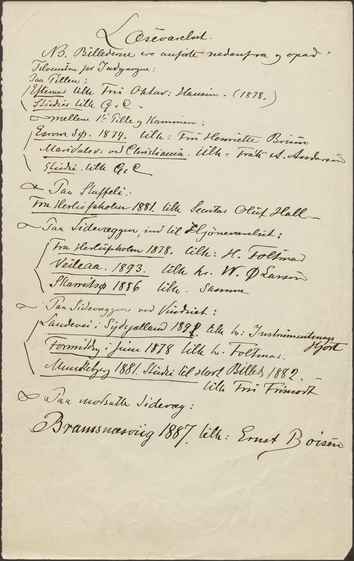 Læseværelset.
NB. Billederne ere anførte nedenfra og opad.
Tilvenstre for Indgangen:
Paa Pillen:
Efteraar tilh. Fru Oktav: Hansen. (1878.)
Studier tilh G. C.
mellem 1ste Pille og Kammer:
Esrom Sø. 1874. tilh: Fru Henriette Boisen
Maridalen ved Christiania. tilh. A. Andersen
Studie. tilh G. C
Paa Staffeli:
Fra Herlufsholm 1881. tilh Oluf Hall
Paa Sidevæggen, ind til Hjørneværelset:
Fra Herlufsholm 1878. tilh: H. Foltmar
Veileaa. 1893. tilh hr. W. Ø Larsen
Skarritsø 1886 tilh. Samme
Paa Sidevæggen ved Vinduet:
Landevei i Sydsjælland tilh hr: Instrumentmager
Hjort
Formiddag i Juni 1878 tilh hr. Foltmar.
1881. Studie til stort Billed 1882.
tilh Fru Frimodt
Paa modsatte Sidevæg:
Bramsnæsvig 1887. tilh: Ernst Boisen